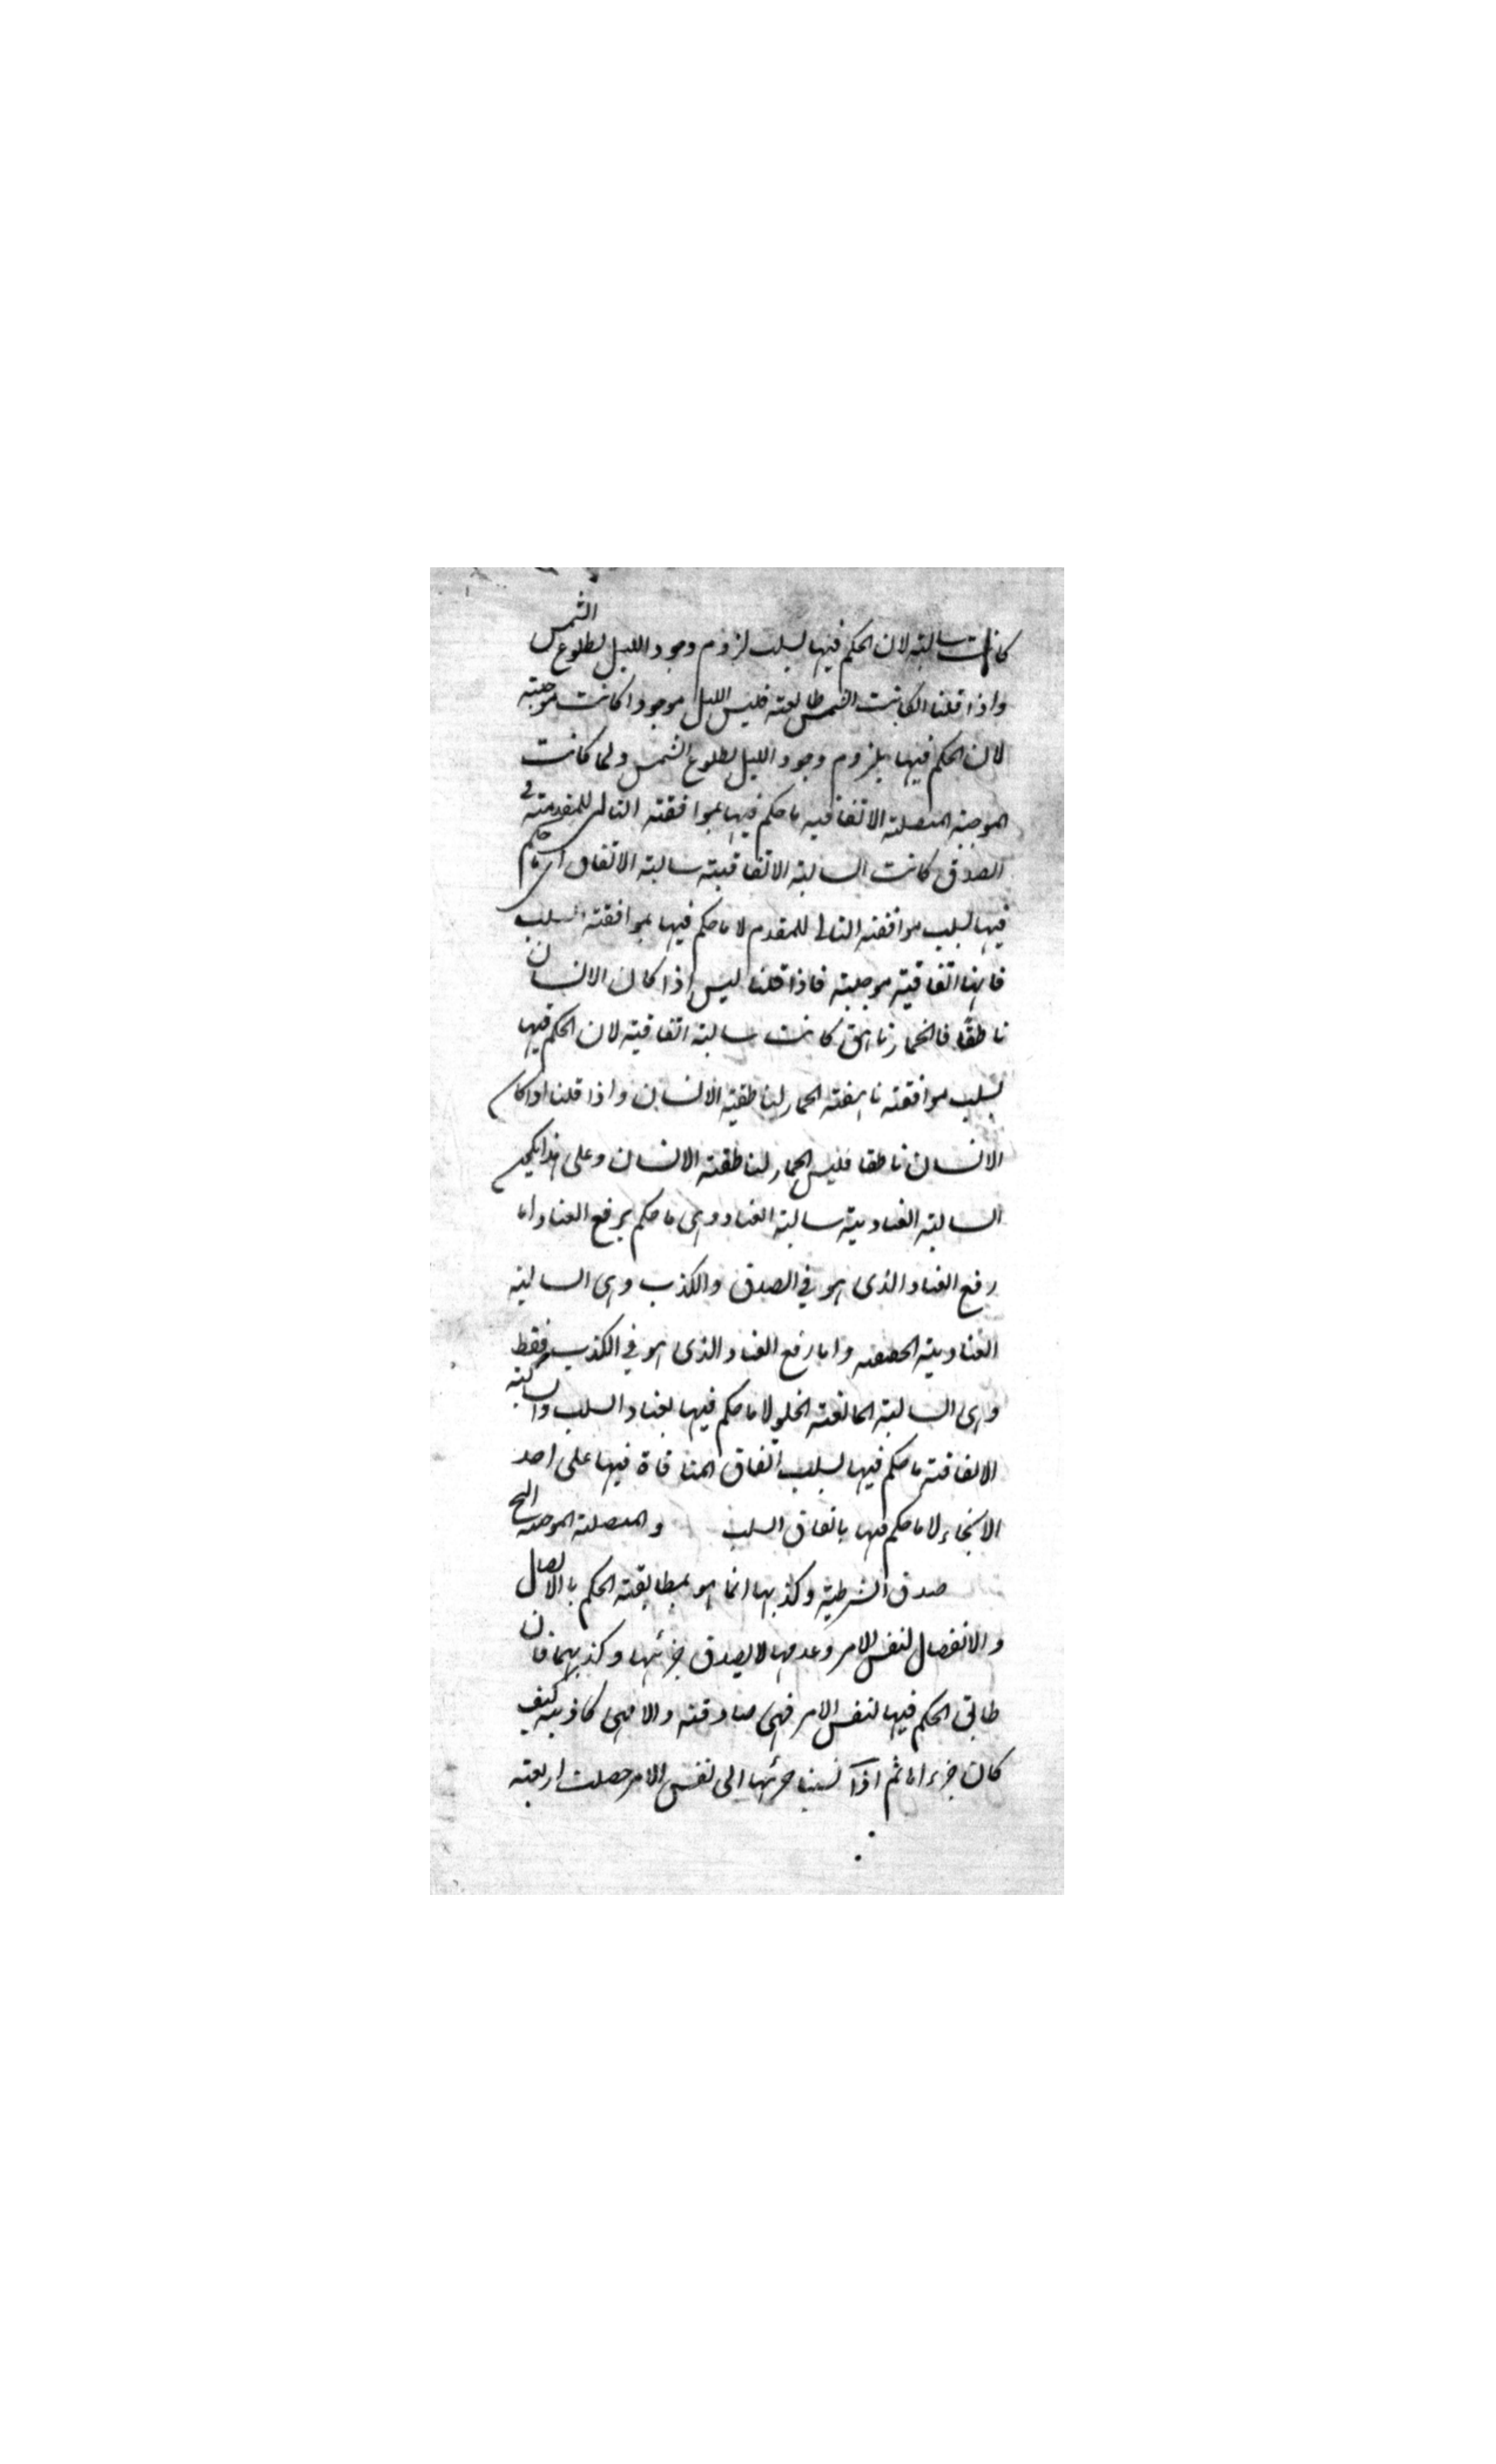 كانت سالبة لان الحكم فيها بسلب لزوم وجود الليل لطلوع الشمس
واذا قلنا اكانت الشمس طالعة فليس الليل موجودا كانت موجبة
لان الحكم فيها بلزوم وجود الليل لطلوع الشمس ولما كانت
الموجبة المتصلة الاتفاقية ما حكم فيها بموافقة التالى للمقدم في
الصدق كانت السالبة الاتفاقية سالبة الاتفاق اى ما حكم
فيها بسلب موافقة التالى للمقدم لا ما حكم فيها بموافقة السلب
فانها اتفاقية موجبة فاذا قلنا ليس اذا كان الانسان
ناطقا فالحمار ناهق كانت سالبة اتفاقية لان الحكم فيها
بسلب موافقة ناهقة الحمار لناطقية الانسان واذا قلنا اذا كان
الانسان ناطقا فليس الحمار لناطقة الانسان وعلى هذا يكون
السالبة العنادية سالبة العناد وهى ما حكم برفع العناد اما
رفع العناد الذى هو في الصدق والكذب وهى السالبة
العنادية الحقيقية واما رفع العناد الذى هو في الكذب فقط
وهى السالبة المانعة الخلو لا ما حكم فيها بعناد السلب والسالبة
الاتفاقية ما حكم فيها بسلب اتفاق المنافاة فيها على احد
الانحاء لا ما حكم فيها باتفاق السلب والمتصلة الموجبة الخ
صدق الشرطية وكذبها انما هو بمطابقة الحكم بالاتصال
والانفصال لنفس الامر وعدمها لا بصدق جزئيها وكذبهما فان
طابق الحكم فيها لنفس الامر فهى صادقة والا فهى كاذبة كيف
كان جزءاها ثم اذا نسبنا جزئيها الى نفس الامر حصلت اربعة